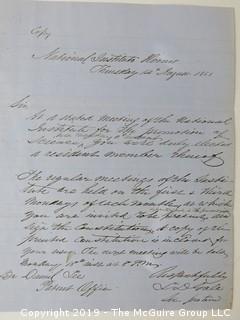 Copy
National Institute Rooms
Thursday 14th August 1851
Sir
At a stated meeting of the National
Institute for the promotion of
Science, you were duly elected
a resident member thereof
The regular meetings of the Institute
are held on the first & third
Mondays of each month, at which
you are invited to be present, and
sign the Constitution. A copy of the
printed Constitution is inclosed for
your use. The next meeting will be
Monday at 8 P.M.
Respectfully
Dr Lee
Patent Office
Copyright 2019 - The McGuire Group LLC